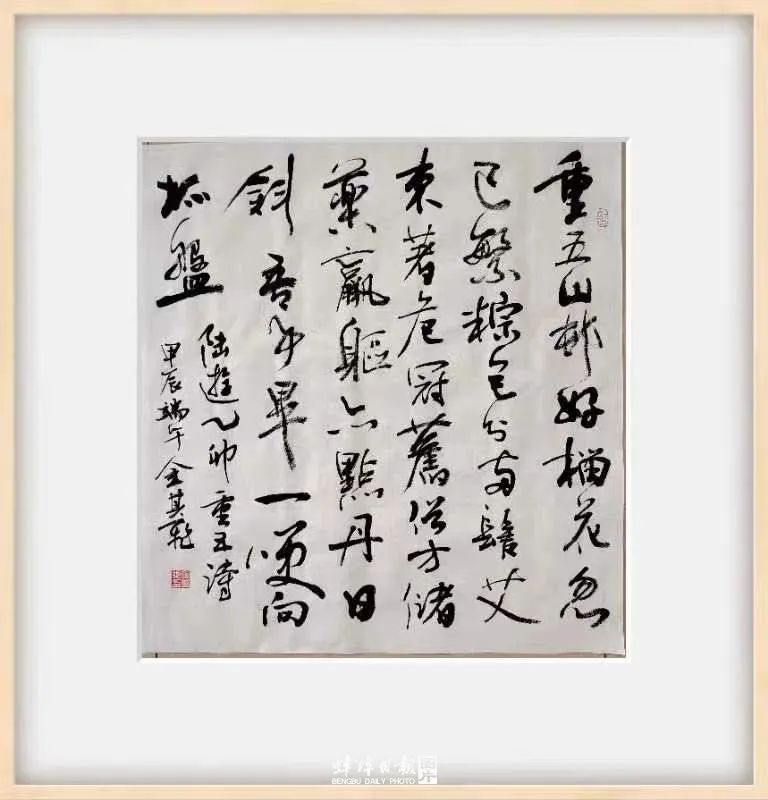 重五山邨好榴花忽
已繁粽包分两髻艾
束著危冠舊俗方儲
藥羸軀亦點丹日
斜吾事畢一咲向
杯盤
陸遊乙卯重五詩
甲辰端午金其乾
蚌埠日報
BENGBU DAILY PHOTO